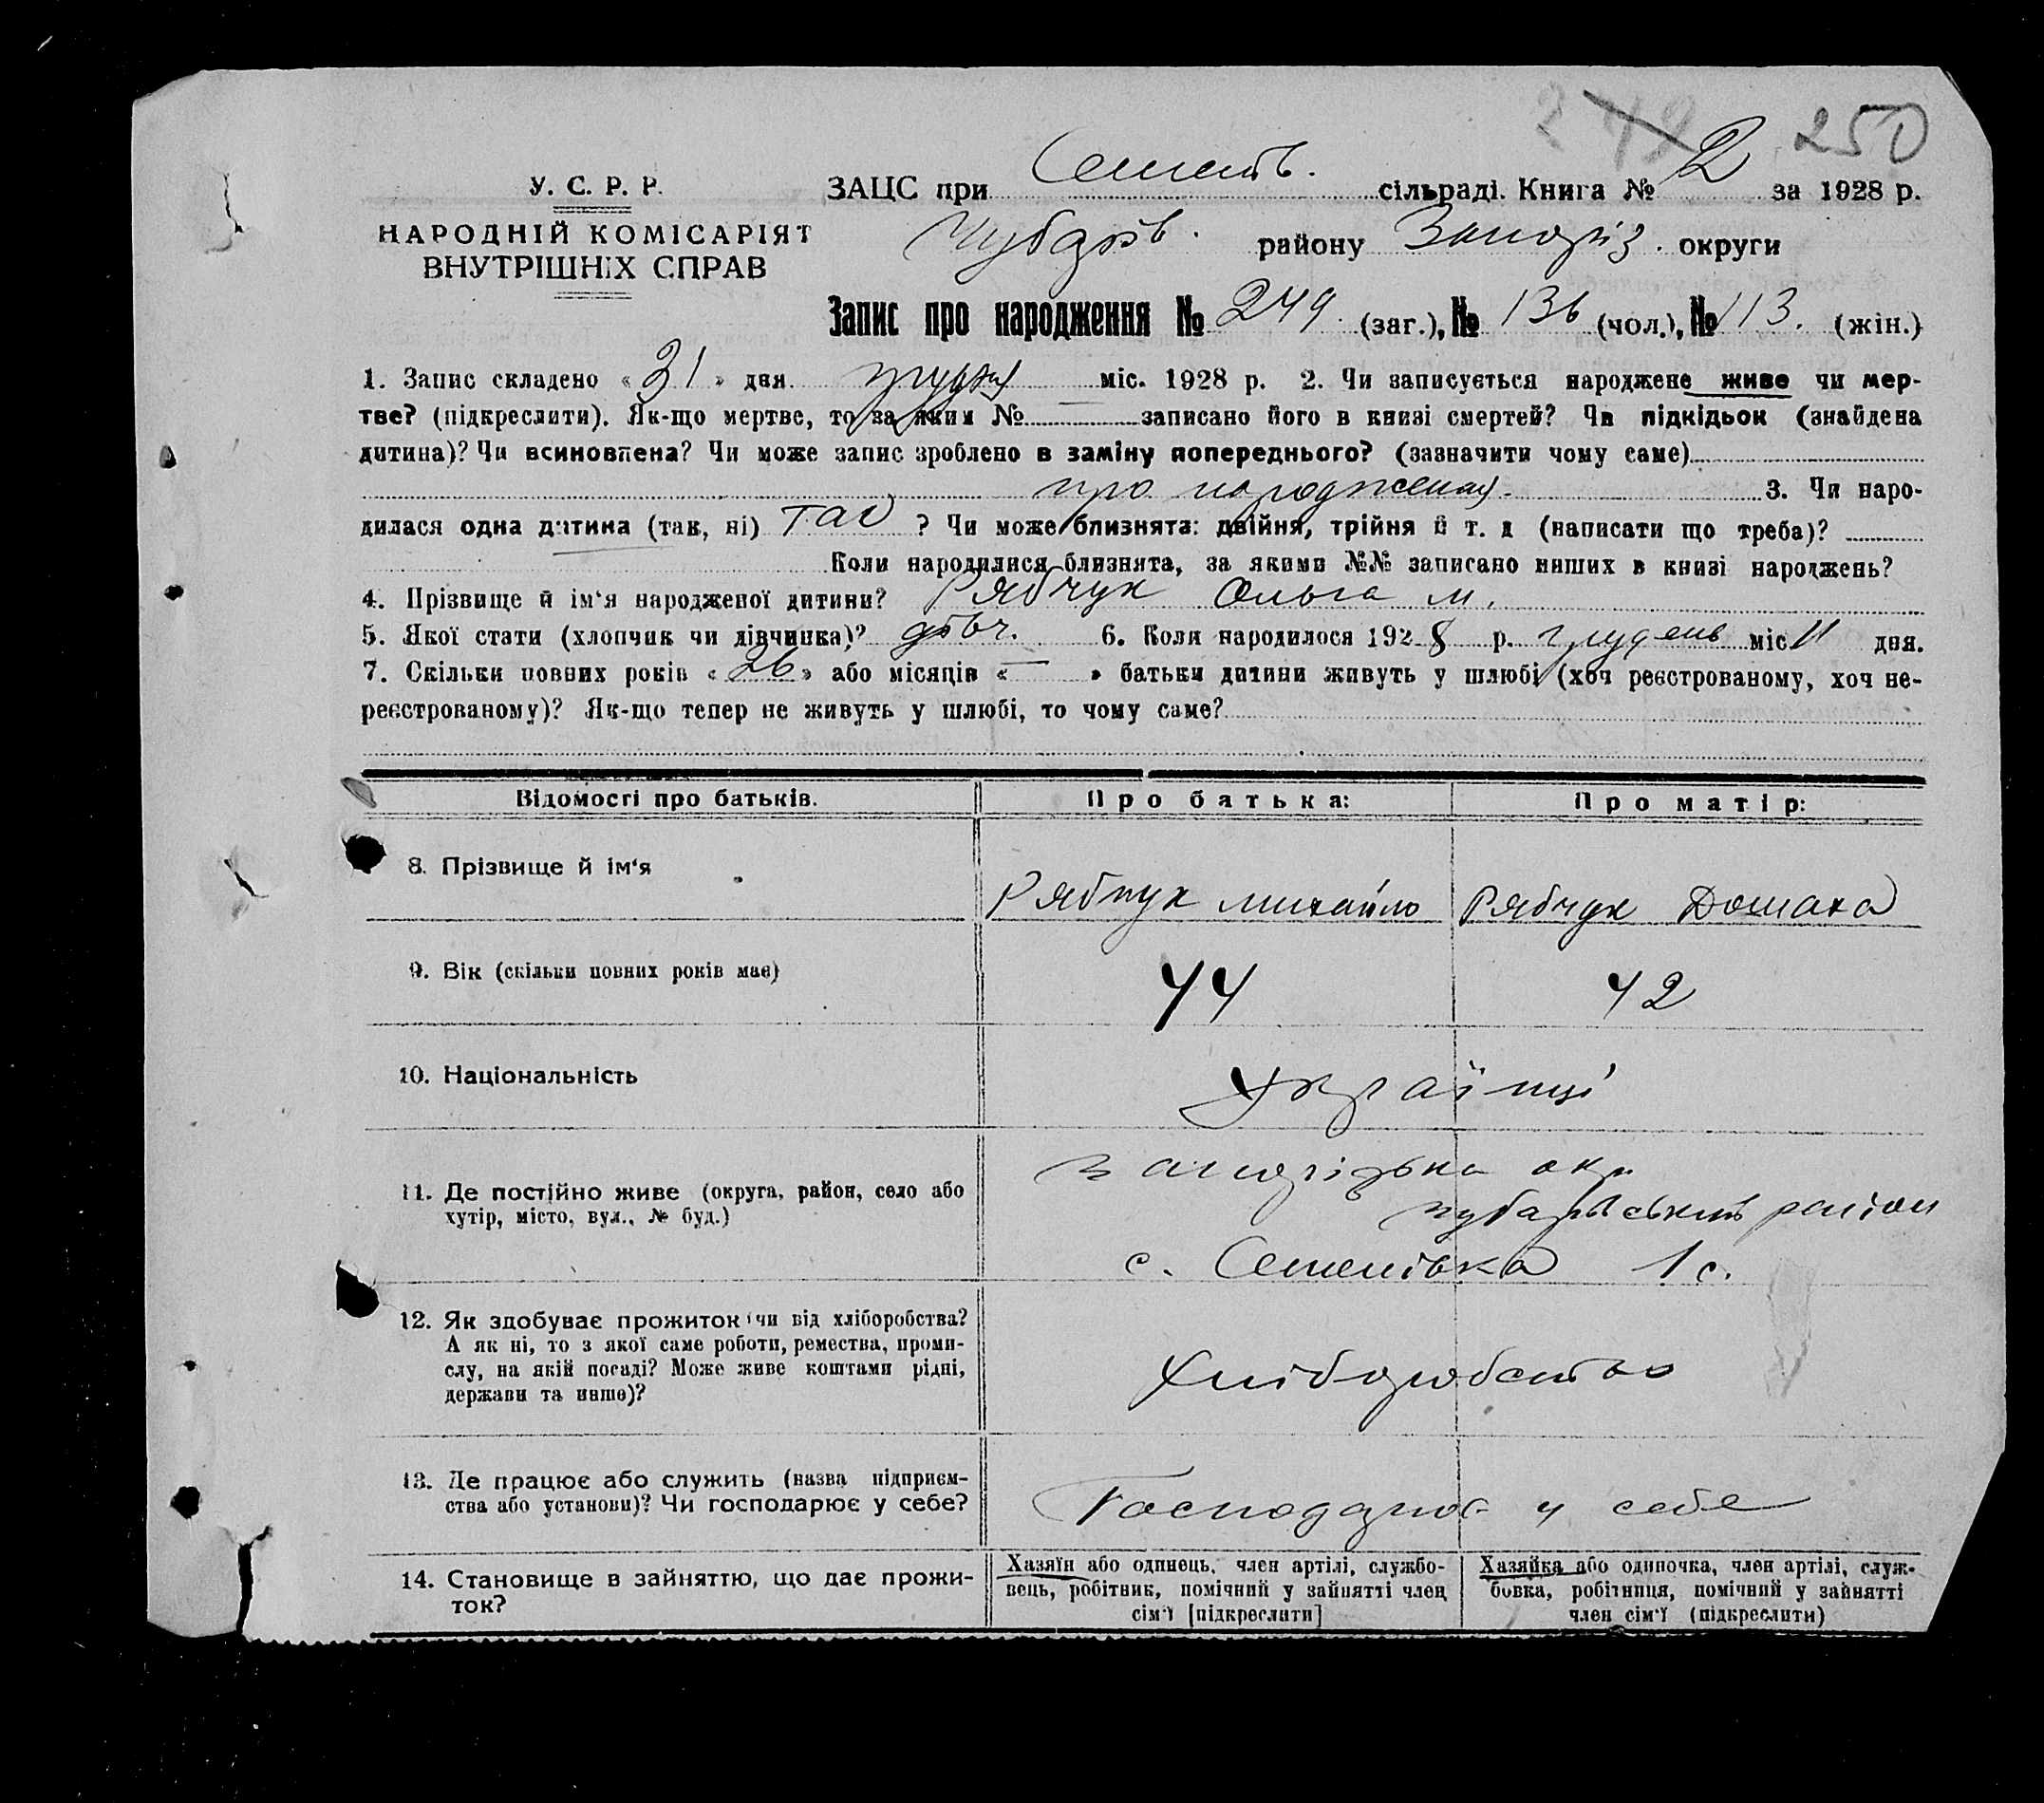 249 250
У. С. Р. Р.
НАРОДНІЙ КОМІСАРІЯТ
ВНУТРІШНІХ СПРАВ
ЗАЦС при Семенів. сільраді. Книга № 2 за 1928 р.
Чубарів. району Запоріз. округи
Запис про народження № 249 (заг.), № 136 (чол.), № 113. (жін.)
1. Запис складено « 31 » дня грудня міс. 1928 р. 2. Чи записується народжене живе чи мер-
тве? (підкреслити). Як-що мертве, то за яким № записано його в книзі смертей? Чи підкідьок (знайдена
дитина)? Чи всиновлена? Чи може запис зроблено в заміну попереднього? (зазначити чому саме)
про народження. 3. Чи наро-
дилася одна дитина (так, ні) так ? Чи може близнята: двійня, трійня й т. д (написати що треба)?
Коли народилися близнята, за якими №№ записано инших в книзі народжень?
4. Прізвище й ім'я народженої дитини? Рябчук Ольга М.
5. Якої стати (хлопчик чи дівчинка)? дівч. 6. Коли народилося 1928 р. грудень міс 11 дня.
7. Скільки повних років « 26 » або місяців « — » батьки дитини живуть у шлюбі (хоч реєстрованому, хоч не-
реєстрованому)? Як-що тепер не живуть у шлюбі, то чому саме?
Відомості про батьків. Про батька: Про матір:
8. Прізвище й ім'я Рябчук Михайло Рябчук Домаха
9. Вік (скільки повних років має) 44 42
10. Національність Українці
11. Де постійно живе (округа, район, село або
хутір, місто, вул., № буд.)
Запорізька окр.
Чубарівський район
с. Семенівка 1 с.
12. Як здобуває прожиток (чи від хліборобства?
А як ні, то з якої саме роботи, ремества, проми-
слу, на якій посаді? Може живе коштами рідні,
держави та инше)?
Хліборобство
13. Де працює або служить (назва підприєм-
ства або установи)? Чи господарює у себе?
Господарює у себе
14. Становище в зайняттю, що дає прожи-
ток?
Хазяїн або одинець, член артілі, службо-
вець, робітник, помічний у зайнятті член
сім'ї [підкреслити]
Хазяйка або одиночка, член артілі, служ-
бовка, робітниця, помічний у зайнятті
член сім'ї (підкреслити)